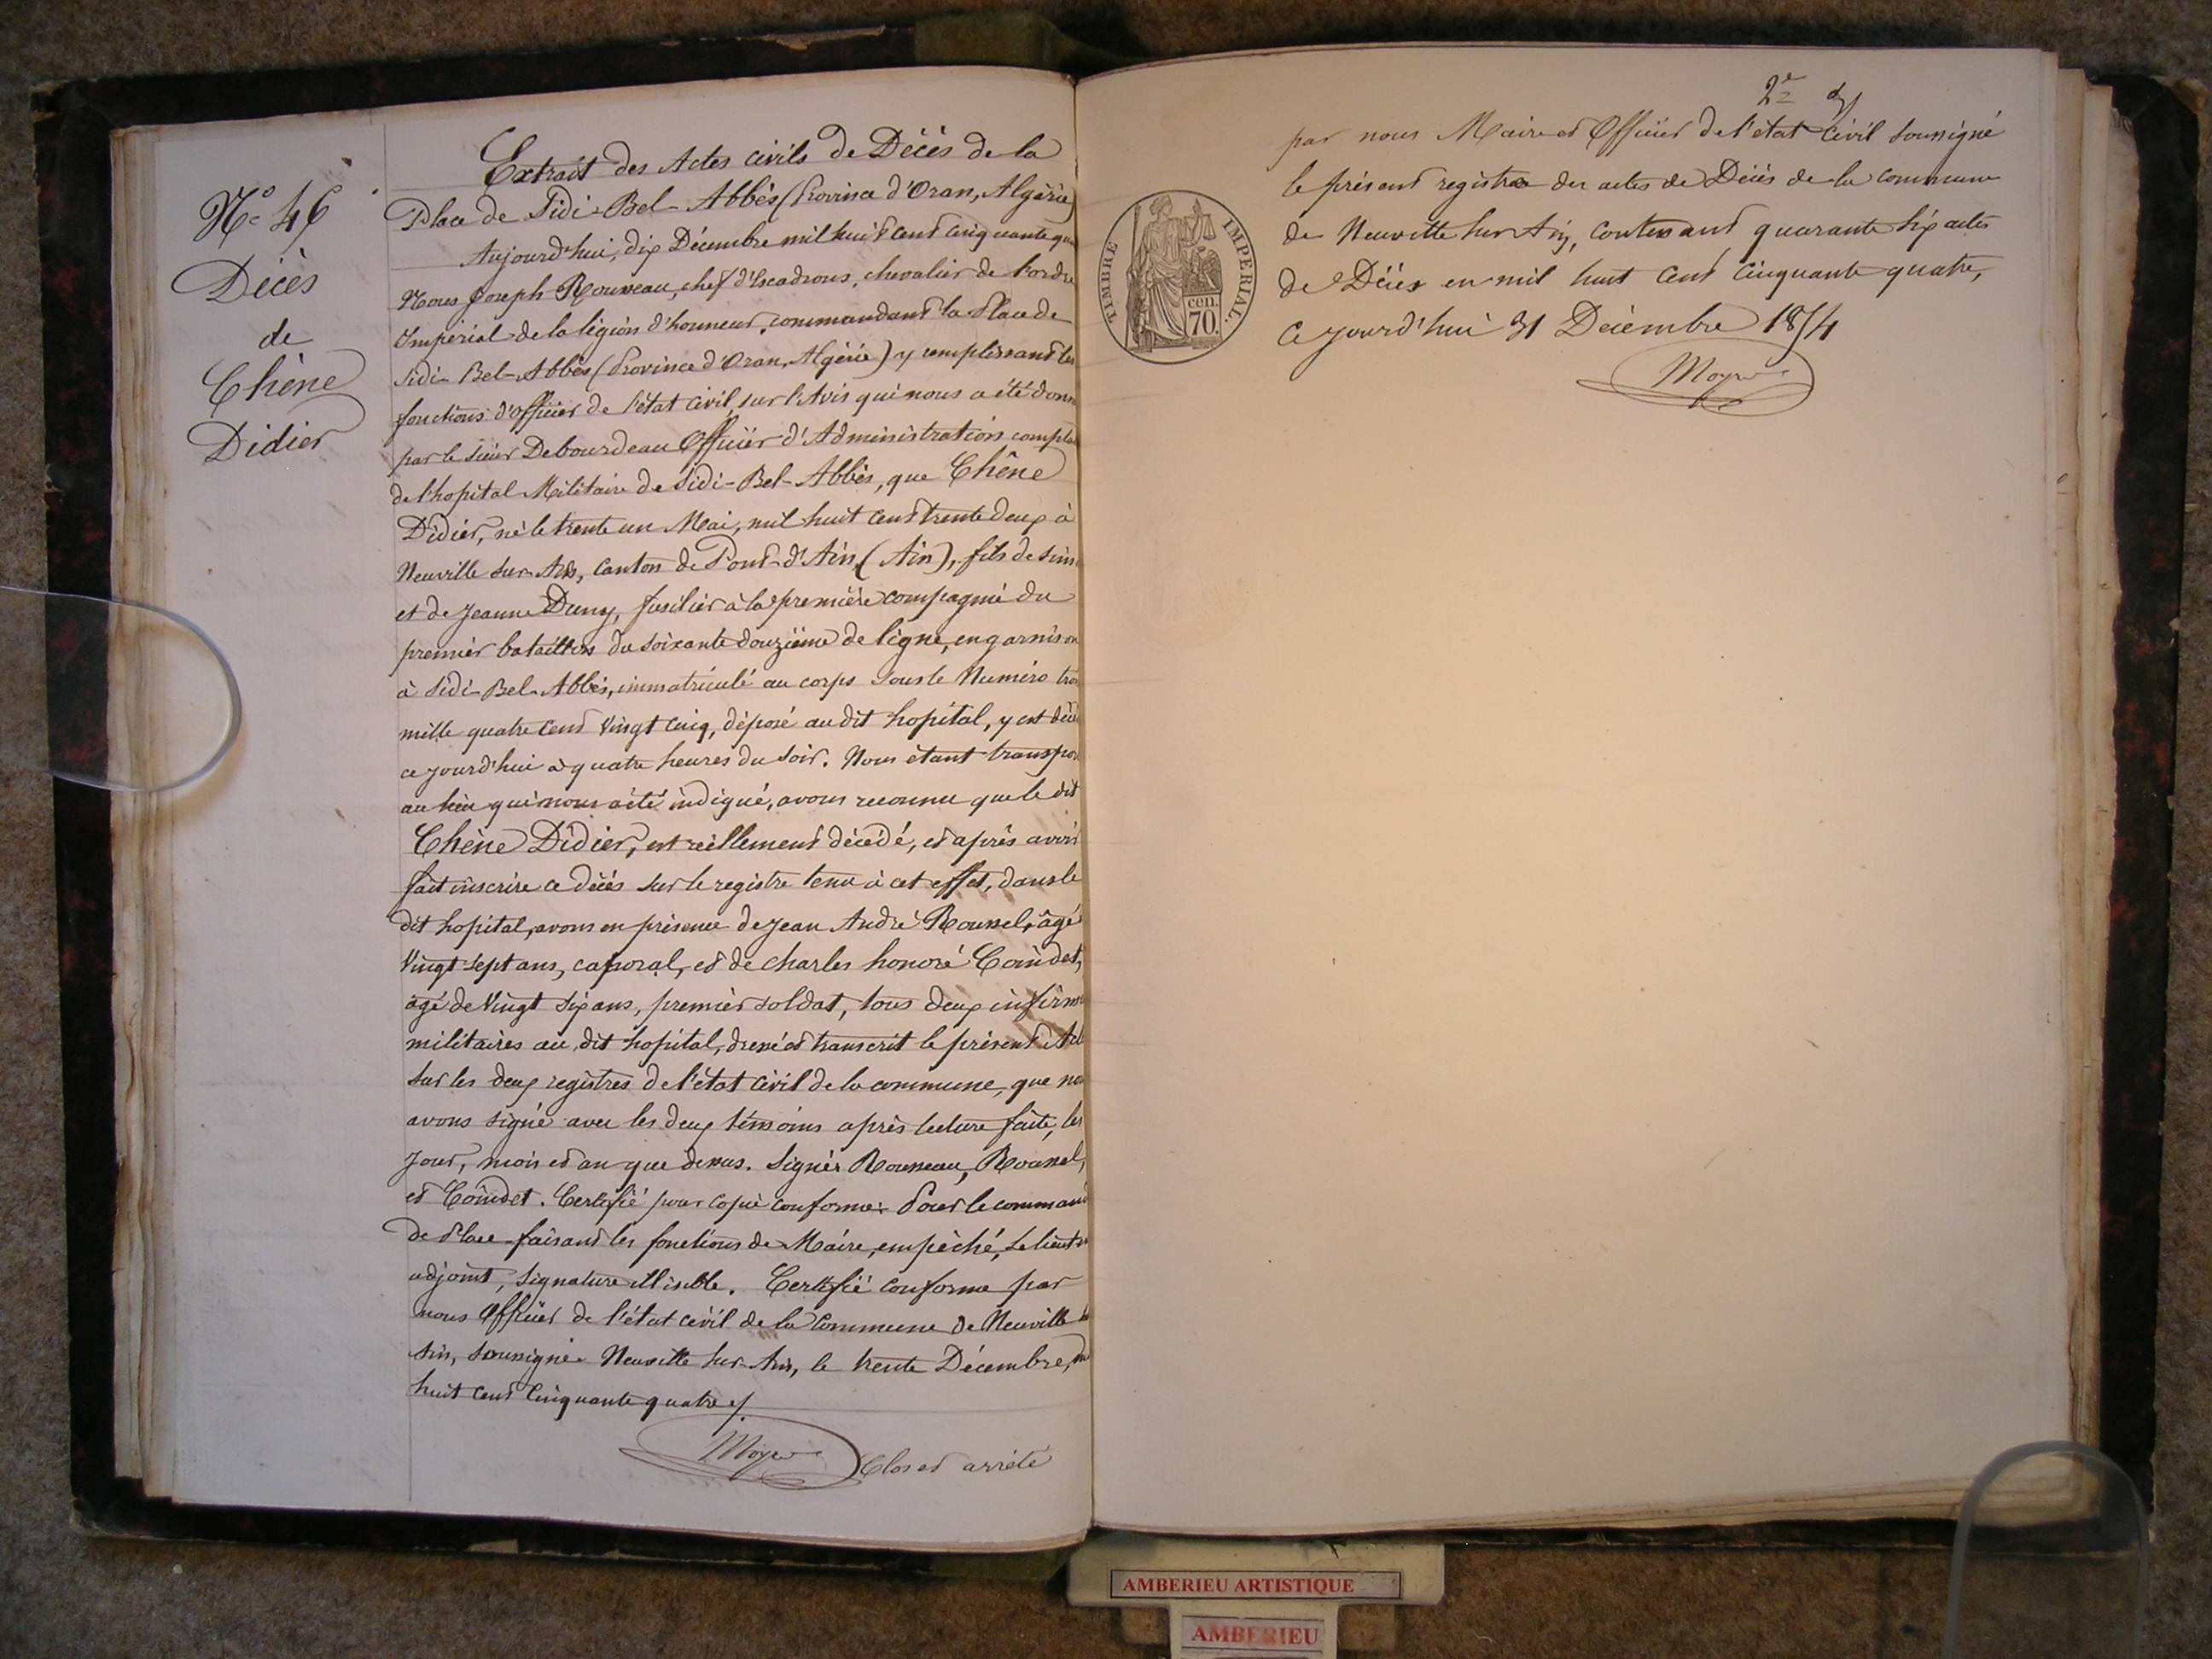 N° 46
Décès
de
Chêne
Didier
Extrait des Actes civils de Décès de la
Place de Sidi-Bel-Abbès (Province d'Oran, Algérie)
Aujourd'hui, dix Décembre mil huit cent cinquante qua
Nous Joseph Rousseau, chef d'Escadrons, chevalier de l'ordre
Impérial de la légion d'honneur, commandant la Place de
Sidi-Bel-Abbès (Province d'Oran, Algérie) y remplissant les
fonctions d'officier de l'état civil, sur l'Avis qui nous a été donn
par le sieur Debourdeau Officier d'Administration compta
de l'hopital Militaire de Sidi-Bel-Abbès, que Chêne
Didier, né le trente un Mai, mil huit cent trente deux à
Neuville sur Ain, canton de Pont-d'Ain (Ain), fils de
et de Jeanne Duny, fusilier à la première compagnie du
premier bataillon du soixante douzième de ligne, en garnison
à Sidi-Bel-Abbès, immatriculé au corps sous le Numéro troi
mille quatre cent vingt cinq, déposé au dit hopital, y est décé
ce jourd'hui à quatre heures du soir. Nous étant transpor
au lieu qui nous a été indiqué, avons reconnu que le dit
Chêne Didier, est réellement décédé, et après avoir
fait inscrire ce décès sur le registre tenu à cet effet, dans le
dit hopital, avons en présence de Jean André Roussel, âgé
vingt sept ans, caporal, et de charles honoré Coindet,
âgé de vingt six ans, premier soldat, tous deux infirm
militaires au dit hopital, dressé et transcrit le présent Act
sur les deux registres de l'état civil de la commune, que no
avons signé avec les deux témoins après lecture faite, les
jour, mois et an que dessus. Signés Rousseau, Roussel,
et Coindet. Certifié pour copie conforme: Pour le command
de Place faisant les fonctions de Maire, empêché, Le lieut
adjoint, signature illisible. Certifié conforme par
nous Officier de l'état civil de la Commune de Neuville
Ain, soussigné. Neuville sur Ain, le trente Décembre, m
huit cent cinquante quatre /.
Moyr
Clos et arrêté
2e
TIMBRE IMPERIAL.
cen.
70.
par nous Maire et Officier de l'état civil soussigné
le présent registre des actes de Décès de la commune
de Neuville sur Ain, contenant quarante six actes
de Décès en mil huit cent cinquante quatre,
Ce jourd'hui 31 Décembre 1854
AMBERIEU ARTISTIQUE
AMBERIEU